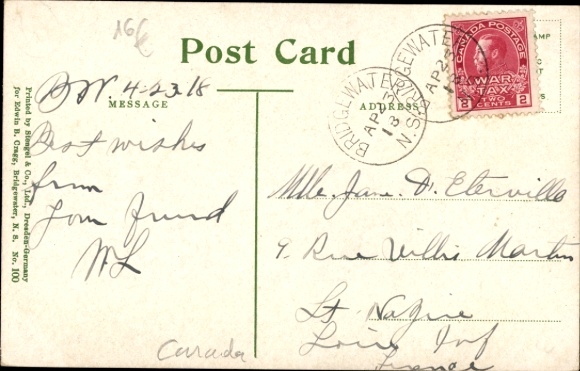 16
Post Card
MESSAGE
ADDRESS
BW 4-23.18
Best wishes
from
your friend
WL
Canada
Printed by Stengel & Co., Ltd., Dresden-Germany
for Edwin B. Cragg, Bridgewater, N. S. No. 100
BRIDGEWATER
AP 23
18
N.S.
BRIDGEWATER
AP 23
CANADA POSTAGE
WAR
TAX
2 TWO CENTS 2
Mlle. Jane. D. Eterville
9. Rue Villis Martin
St. Nazire
Loire Inf
France